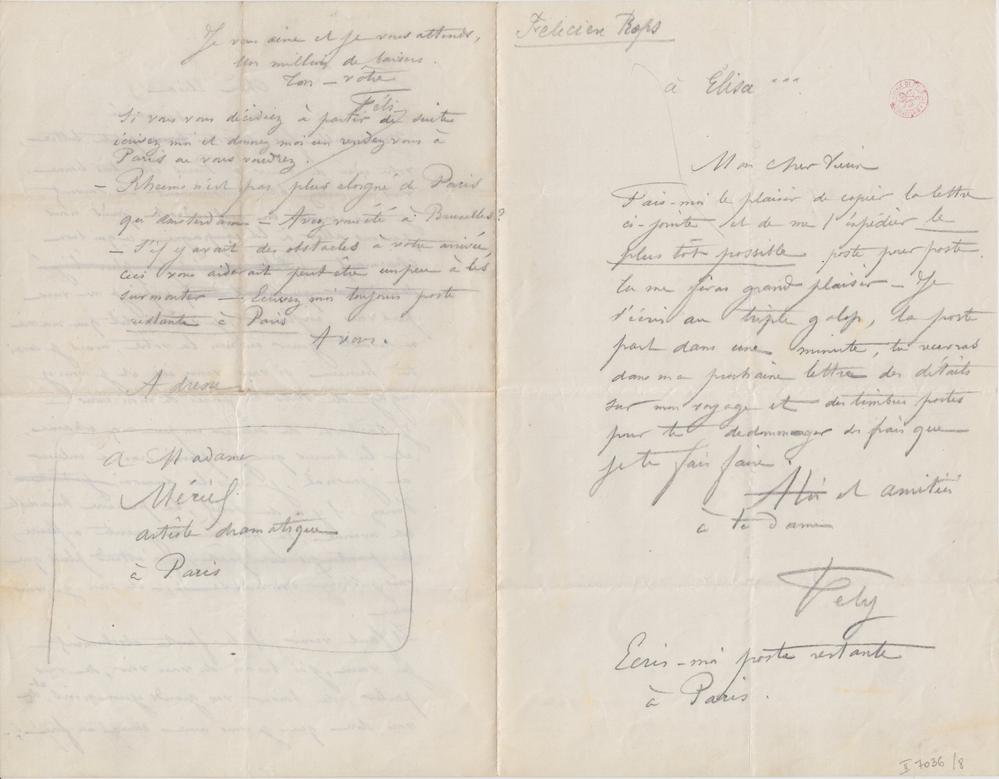 Je vous aime et je vous attends,
Un million de baisers.
Ton – vôtre
Féli
Si vous vous décidiez à partir de suite
écrivez moi et donnez moi un rendez vous à
Paris où vous voudrez.
– Rheims n'est pas plus eloigné de Paris
qu'Amsterdam – Avez vous été à Bruxelles?
– S'il y avait des obstacles à votre arrivée
ceci vous aiderait peut être un peu à les
surmonter – Ecrivez moi toujours poste
restante à Paris
A vous.
Adresse
à Madame
Mériel
artiste dramatique
à Paris
Félicien Rops
à Elisa ***
Mon cher Vieux
Fais-moi le plaisir de copier la lettre
ci-jointe et de me l'expédier le
plus tôt possible poste pour poste.
tu me feras grand plaisir – Je
t'écris au triple galop, la poste
part dans une minute, tu recevras
dans ma prochaine lettre des détails
sur mon voyage et des timbres postes
pour te dedommager des frais que
je te fais faire.
et amitiés
à ta Dame
Fely
Ecris-moi poste restante
à Paris.
II 7036/8